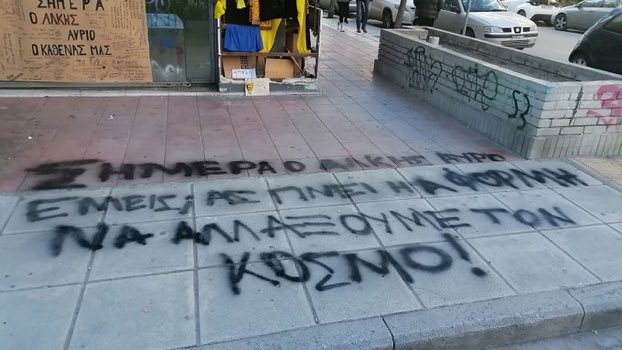 ΣΗΜΕΡΑ
Ο ΛΑΚΗΣ
ΑΥΡΙΟ
Ο ΚΑΘΕΝΑΣ ΜΑΣ
ΣΗΜΕΡΑ Ο ΑΛΚΗΣ ΑΥΡΙΟ
ΕΜΕΙΣ; ΑΣ ΓΙΝΕΙ Η ΑΦΟΡΜΗ
ΝΑ ΑΛΛΑΞΟΥΜΕ ΤΟΝ
ΚΟΣΜΟ!